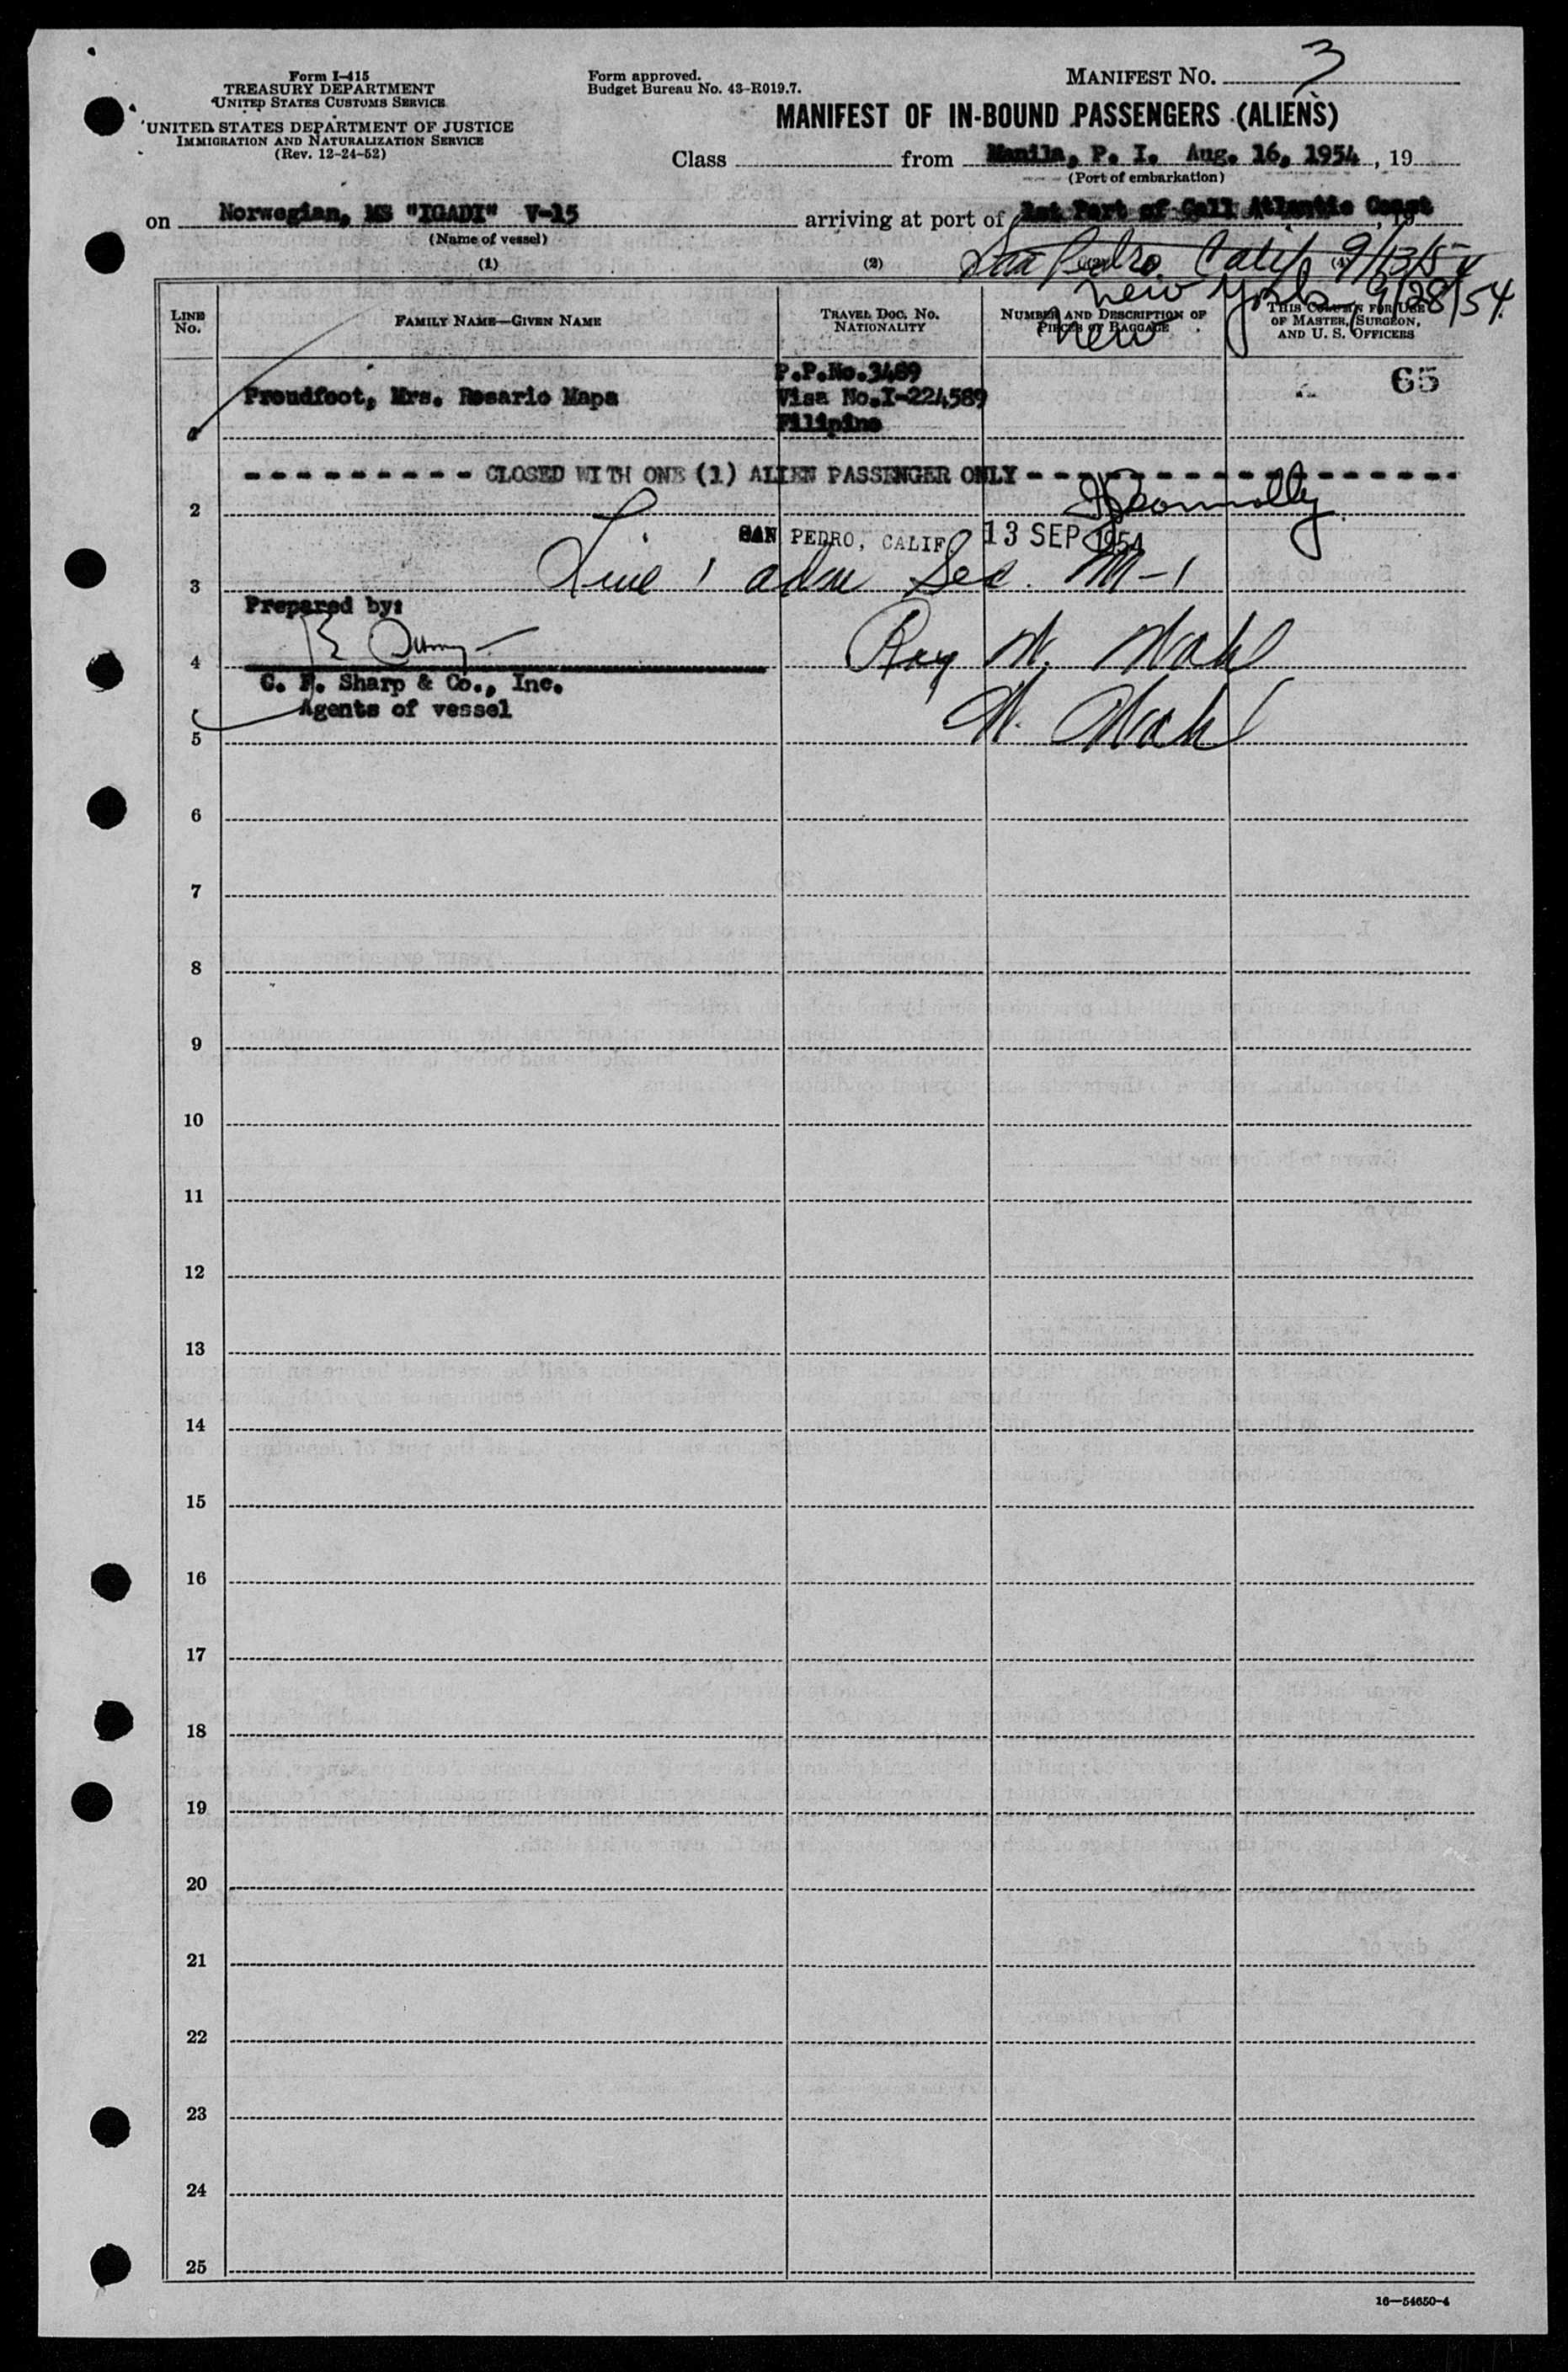 Form I-415
TREASURY DEPARTMENT
UNITED STATES CUSTOMS SERVICE
UNITED STATES DEPARTMENT OF JUSTICE
IMMIGRATION AND NATURALIZATION SERVICE
(Rev. 12-24-52)
Form approved.
Budget Bureau No. 43-R019.7.
MANIFEST NO. 3
MANIFEST OF IN-BOUND PASSENGERS (ALIENS)
Class from Manila, P. I. Aug. 16, 1954, 19
(Port of embarkation)
on Norwegian, MS "IGADI" V-15 arriving at port of 1st Port of Call Atlantic Coast, 19
(Name of vessel)
San Pedro, Calif 9/13/54
(1) (2) (3) (4)
New York 9/28/54
LINE No.
FAMILY NAME—GIVEN NAME
TRAVEL DOC. NO. NATIONALITY
NUMBER AND DESCRIPTION OF PIECES OF BAGGAGE
THIS COLUMN FOR USE OF MASTER, SURGEON, AND U. S. OFFICERS
New
P.P.No.3489
Proudfoot, Mrs. Rosario Mapa Visa No.I-224589 65
Filipino
- - - - - - - - - - CLOSED WITH ONE (1) ALIEN PASSENGER ONLY - - - - - - - - - - - - - - - - - -
2
SAN PEDRO, CALIF 13 SEP 1954
3 Line 1 adm Sec. M-1
Prepared by:
4 Roy W. Wahl
C. F. Sharp & Co., Inc.
Agents of vessel
5 W. Wahl
6
7
8
9
10
11
12
13
14
15
16
17
18
19
20
21
22
23
24
25
16—54650-4